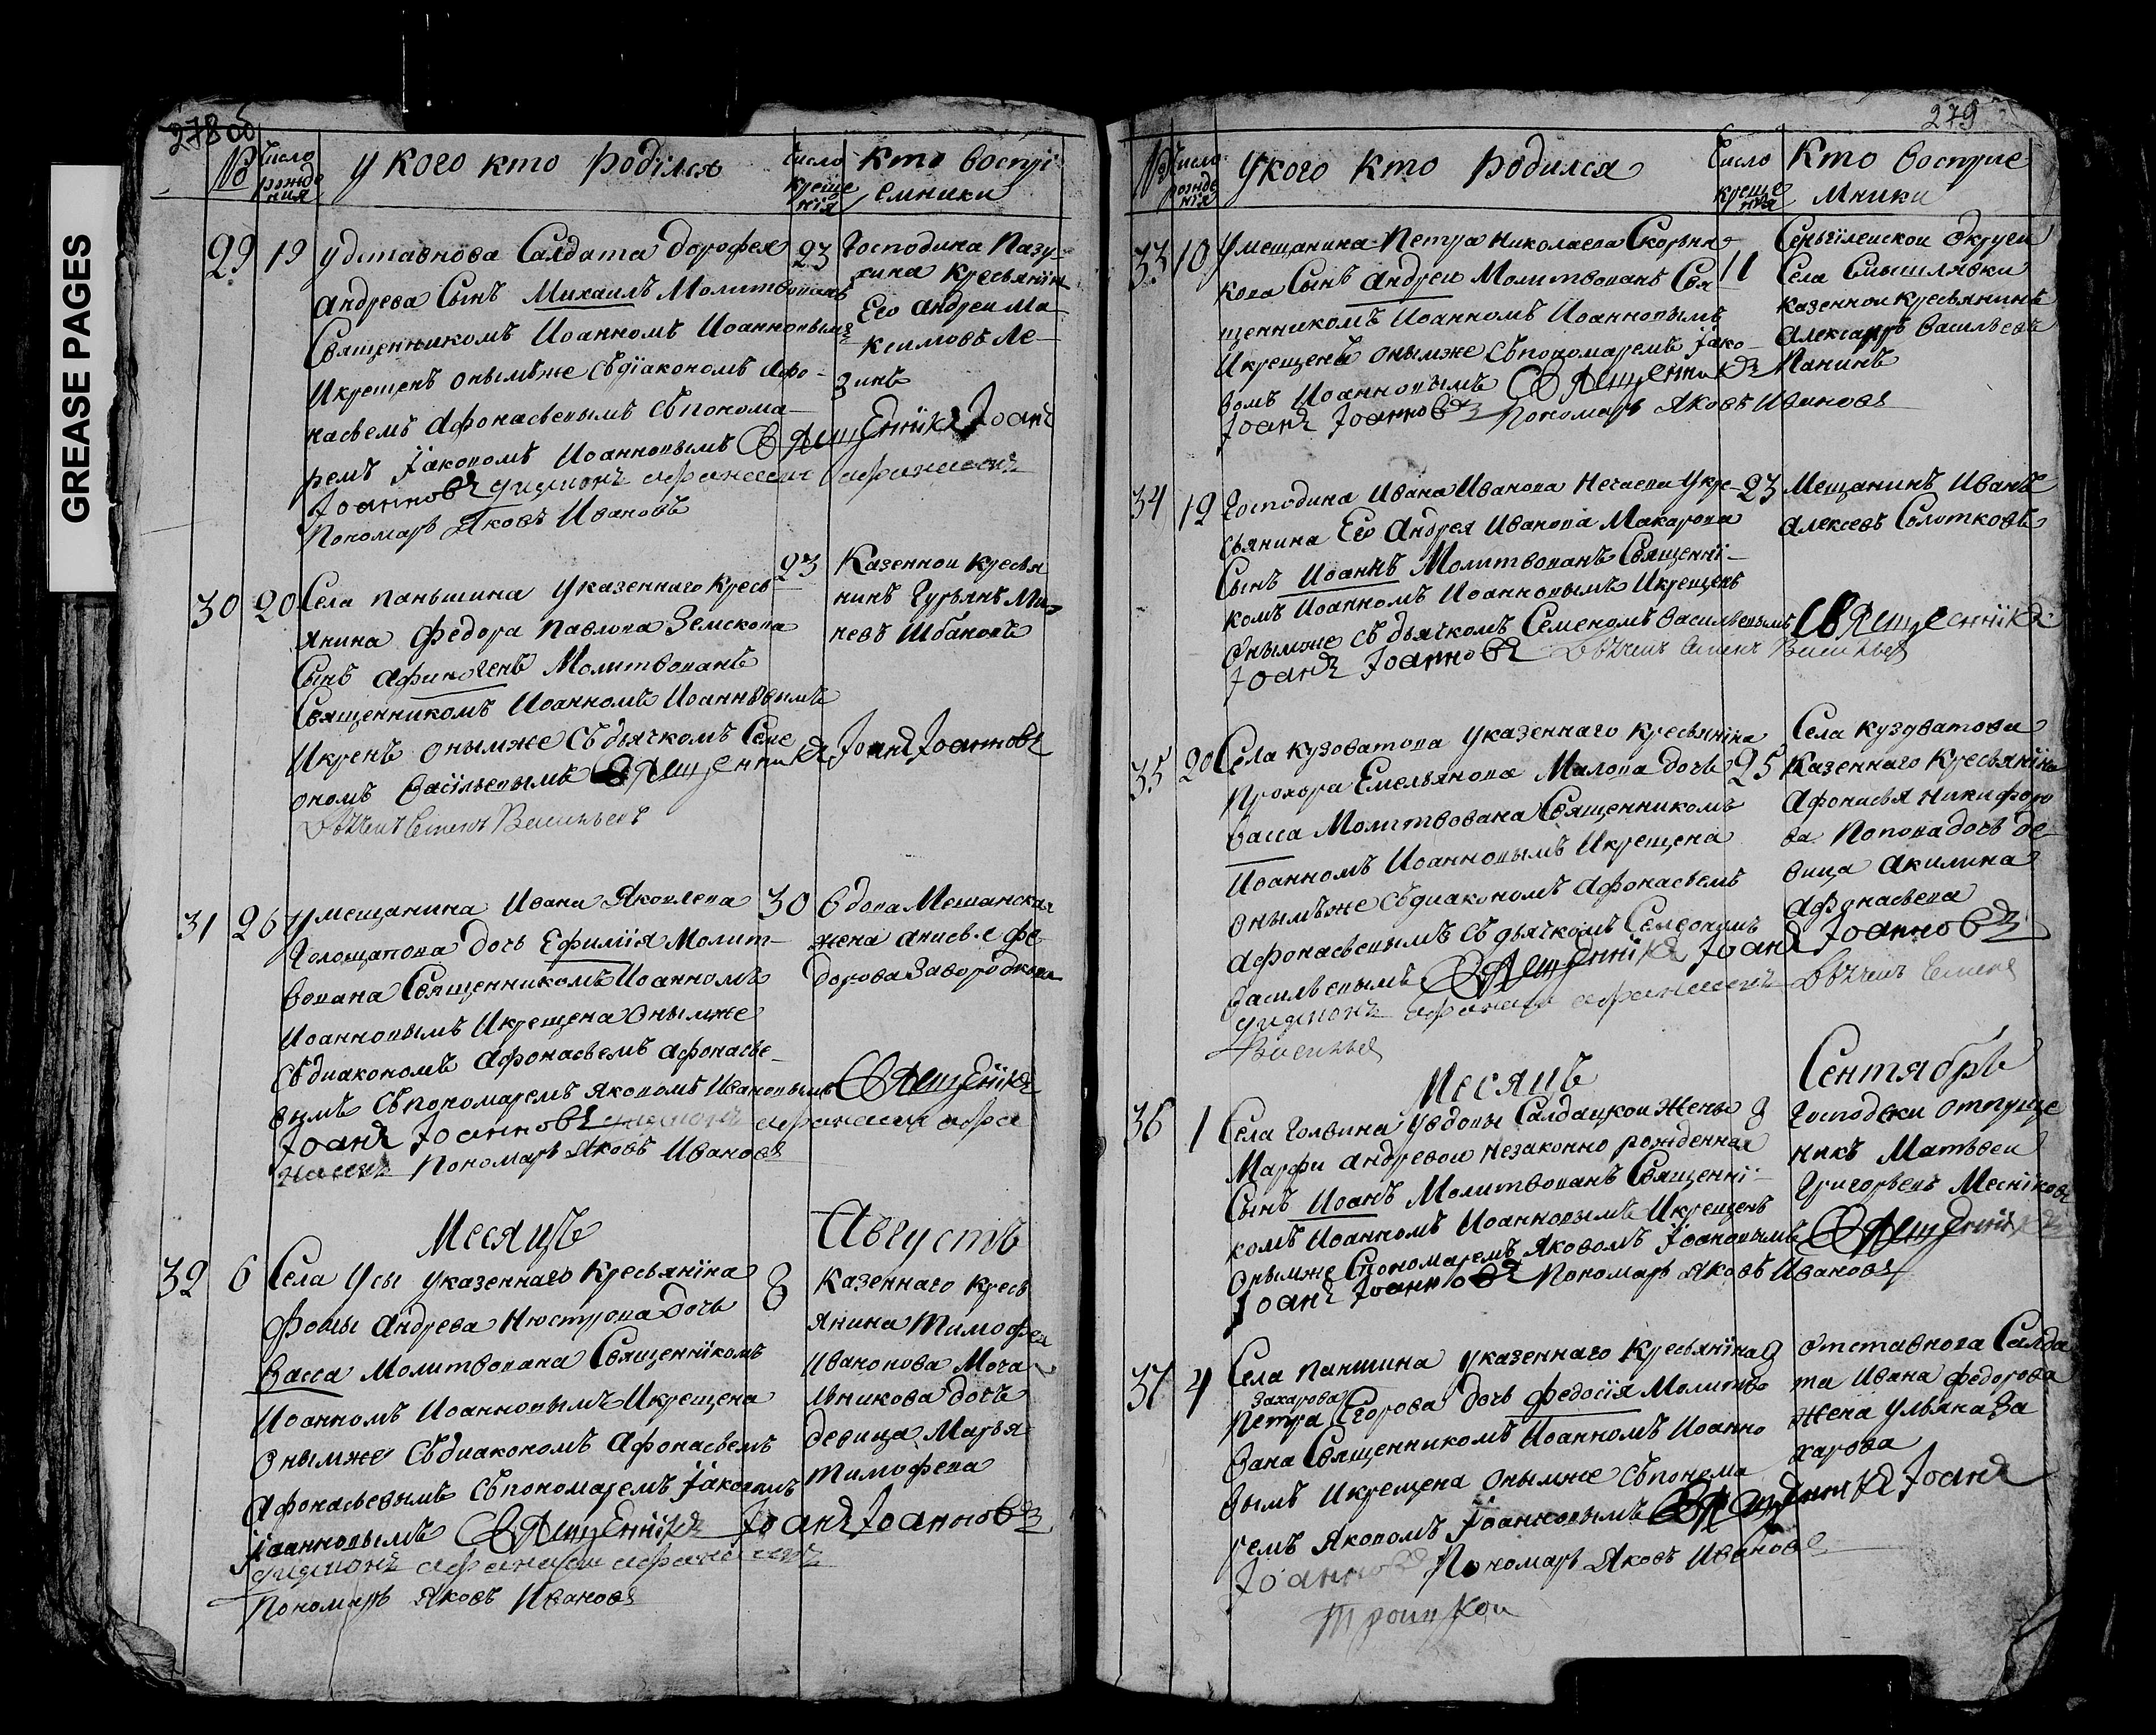 GREASE PAGES
278 об
№
Число рождения
у кого кто родился
Число крещенiя
кто воспрi
емники
29
19
удставнова Салдата дорофея
андрева Сынъ Михаилъ Молитвованъ
Священникомъ Иоанномъ Иоанновымъ
Икрещенъ онымъже Съдiакономъ афо-
насьемъ афонасьевымъ съ понома-
ремъ Iаковомъ Иоанновымъ Священнiкъ Iоанъ
Iоанновъ диаконъ афанасеи афанасевъ
Пономарь Яковъ Ивановъ
23
Господина Пазу-
хина кресьянiнъ
Ево андреи Ма-
ксимовъ Ле-
зинъ
30
20
Села паньшина Указеннаго кресь
янина федора павлова Земскова
Сынъ афиногенъ Молитвованъ
Священникомъ Иоанномъ Иоанновымъ
Икренъ онымже Съ дьячкомъ Семе
ономъ Васiльевымъ Священникъ Iоанъ Iоанновъ
Дьячекъ Семенъ Васильевъ
23
Казеннои кресья
нинъ Гурьянъ Ми
невъ Шбановъ
31
26
Умещанина Ивана Яковлева
Голощапова дочь Ефимiя Молит-
вована Священникомъ Иоанномъ
Иоанновымъ Икрещена Онымже
Съдиакономъ афонасьемъ афонасье-
вымъ Съпономаремъ Яковомъ Ивановымъ Священiкъ
Iоанъ Iоанновъ диаконъ афанасеи афа
насевъ Пономарь Яковъ Ивановъ
30
Вдова Мещанская
жена анисья фе
дорова Заворо
Месяцъ
Августъ
32
6
Села Усы указеннаго кресьянiна
Фомы андрева Нюстрова дочь
васса Молитвована Священнiкомъ
Иоанномъ Иоанновымъ Икрещена
Онымже Съдиакономъ афонасьемъ
Афонасьевымъ Съпономаремъ Iаковомъ
Iоанновымъ Священнiкъ Iоанъ Iоанновъ
диаконъ афанасеи афанасевъ
Пономарь Яковъ Ивановъ
8
Казеннаго кресь
янина Тимофея
Иванова Моча
льникова дочь
девица Марья
Тимофева
279
№
Число рожденiя
Укого кто родился
Число крещенiя
Кто восприе
мники
33
10
Умещанина Петра Николаева Скорня
кова Сынъ андреи Молитвованъ Свя-
щенникомъ Иоанномъ Иоанновымъ
Икрещенъ онымже Съпономаремъ Iако-
вомъ Иоанновымъ Священникъ
Iоанъ Iоанновъ Пономарь Яковъ Ивановъ
11
Сенгiлеискои округи
Села Смышлявки
казеннои кресьянинъ
Александръ Васильевъ
Панинъ
34
19
Господина Ивана Иванова Нечаева Укре-
сьянина Ево Андрея Иванова Макарова
Сынъ Иоаннъ Молитвованъ Священнi-
комъ Иоанномъ Иоанновымъ Икрещенъ
Онымже съ дьячкомъ Семеномъ Васильевымъ Священнiкъ
Iоанъ Iоанновъ Дьячекъ Семенъ Васильев
23
Мещанинъ Иванъ
Алексевъ Солотковъ
35
20
Села кузоватова Указеннаго кресьянiна
Прохора Емельянова Малова дочь
васса Молитвована Священникомъ
Иоанномъ Иоанновымъ Икрещена
Онымъже Съдиакономъ афонасьемъ
афонасьевымъ Съ дьячкомъ Семеономъ
Васильевымъ Священнiкъ Iоанъ Iоанновъ
диаконъ афанасеи афанасевъ Дьячекъ Семенъ
Васильев
25
Села кузоватова
казеннаго кресьянiна
афонасья никифоро
ва Попова дочь де-
вица акилина
афонасьева
Месяцъ
Сентябрь
36
1
Села Головина Увдовы Салдацкои жены
Марфы андревои незаконно рожденнаи
Сынъ Иоанъ Молитвованъ Священнi-
комъ Иоанномъ Иоанновымъ Икрещенъ
Онымже Спономаремъ Яковомъ Iоановымъ Священнiкъ
Iоанъ Iоанновъ Пономарь Яковъ Ивановъ
8
Господски отпуще
никъ Матвеи
Григорьевъ Меснiковъ
37
4
Села паншина указеннаго кресьянiна
Захарова
Петра Егорова дочь федосiя Молитво
вана Священникомъ Иоанномъ Иоанно
вымъ Икрещена онымже Съпонома
ремъ Яковомъ Iоанновымъ Священникъ Iоанъ
Iоанновъ Пономарь Яковъ Ивановъ
9
отставнова Салда
та Ивана федорова
жена ульяна За
харова
Троицкои